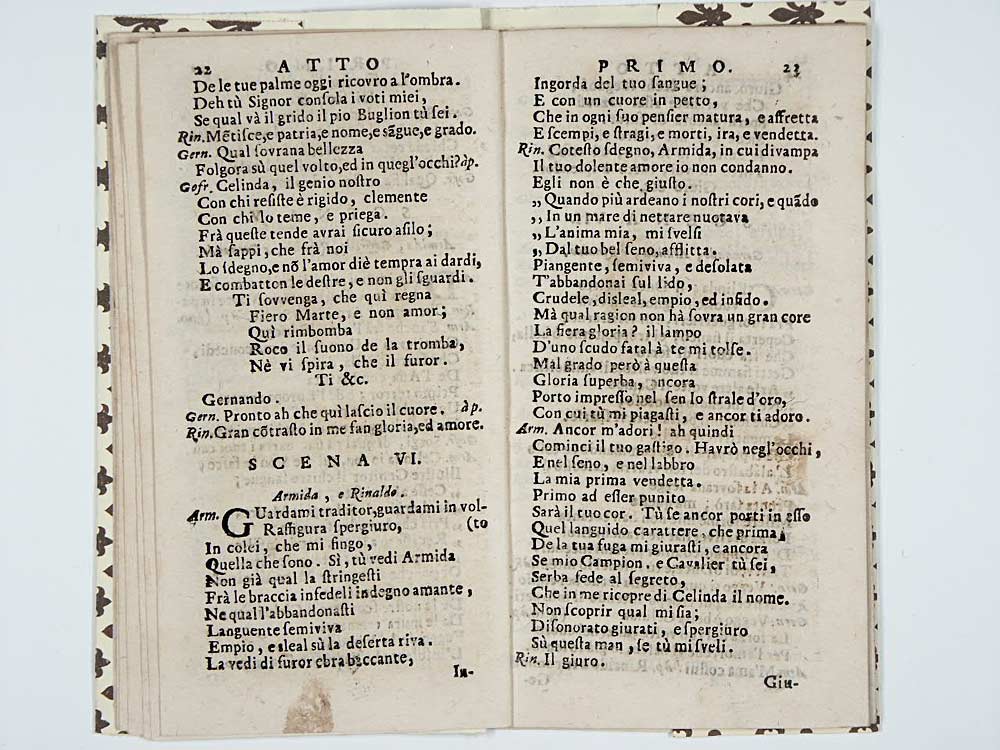 22 ATTO
De le tue palme oggi ricovro a l'ombra.
Deh tù Signor conſola i voti miei,
Se qual và il grido il pio Buglion tù ſei.
Rin. Mẽtiſce, e patria, e nome, e sãgue, e grado.
Gern. Qual ſovrana bellezza
Folgora sù quel volto, ed in quegl'occhi? àp.
Gofr. Celinda, il genio noſtro
Con chi reſiſte è rigido, clemente
Con chi lo teme, e priega.
Frà queſte tende avrai ſicuro aſilo;
Mà ſappi, che frà noi
Lo ſdegno, e nõ l'amor diè tempra ai dardi,
E combatton le deſtre, e non gli ſguardi.
Ti ſovvenga, che quì regna
Fiero Marte, e non amor;
Quì rimbomba
Roco il ſuono de la tromba,
Nè vi ſpira, che il furor.
Ti &c.
Gernando.
Gern. Pronto ah che quì laſcio il cuore. àp.
Rin. Gran cõtraſto in me fan gloria, ed amore.
SCENA VI.
Armida, e Rinaldo.
Arm. GUardami traditor, guardami in vol-
Raffigura ſpergiuro, (to
In colei, che mi fingo,
Quella che ſono. Sì, tù vedi Armida
Non già qual la ſtringeſti
Frà le braccia infedeli indegno amante,
Ne qual l'abbandonaſti
Languente ſemiviva
Empio, e sleal sù la deſerta riva.
La vedi di furor ebra baccante,
In-
PRIMO. 23
Ingorda del tuo ſangue;
E con un cuore in petto,
Che in ogni ſuo penſier matura, e affretta
E ſcempi, e ſtragi, e morti, ira, e vendetta.
Rin. Coteſto ſdegno, Armida, in cui divampa
Il tuo dolente amore io non condanno.
Egli non è che giuſto.
„ Quando più ardeano i noſtri cori, e quãdo
„ In un mare di nettare nuotava
„ L'anima mia, mi ſvelſi
„ Dal tuo bel ſeno, afflitta.
Piangente, ſemiviva, e deſolata
T'abbandonai ſul lido,
Crudele, disleal, empio, ed infido.
Mà qual ragion non hà ſovra un gran core
La fiera gloria? il lampo
D'uno ſcudo fatal à te mi tolſe.
Mal grado però à queſta
Gloria ſuperba, ancora
Porto impreſſo nel ſen lo ſtrale d'oro,
Con cui tù mi piagaſti, e ancor ti adoro.
Arm. Ancor m'adori! ah quindi
Cominci il tuo gaſtigo. Havrò negl'occhi,
E nel ſeno, e nel labbro
La mia prima vendetta.
Primo ad eſſer punito
Sarà il tuo cor. Tù ſe ancor porti in eſſo
Quel languido carattere, che prima
De la tua fuga mi giuraſti, e ancora
Se mio Campion. e Cavalier tù ſei,
Serba fede al ſegreto,
Che in me ricopre di Celinda il nome.
Non ſcoprir qual mi ſia;
Diſonorato giurati, e ſpergiuro
Sù queſta man, ſe tù mi ſveli.
Rin. Il giuro.
Giu-